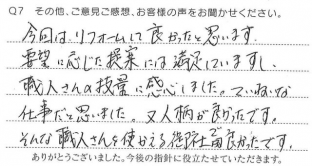 Q7 その他、ご意見ご感想、お客様の声をお聞かせください。
今回は、リフォームして良かったと思います。
要望に応じた提案には満足していますし、
職人さんの技量に感心しました。ていねいな
仕事だと思いました。又人柄が良かったです。
そんな職人さんを使かえる 良かったです。
ありがとうございました。今後の指針に役立たせていただきます。